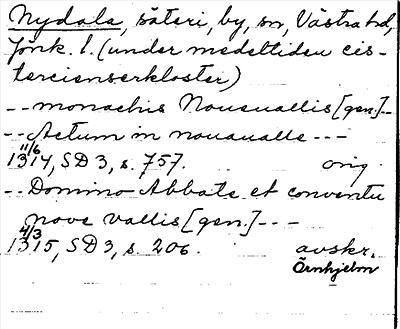 Nydala, säteri, by, sn, Västra hd,
Jönk. l. (under medeltiden cis-
tercienserkloster)
-- monachis Noueuallis [gen.] --
-- Actum in nouaualle ---
11/6
1314, SD 3, s. 757. orig.
-- Domino Abbate et conventu
nove vallis [gen.] ---
4/3
1315, SD 3, s. 206. avskr.
Örnhjelm